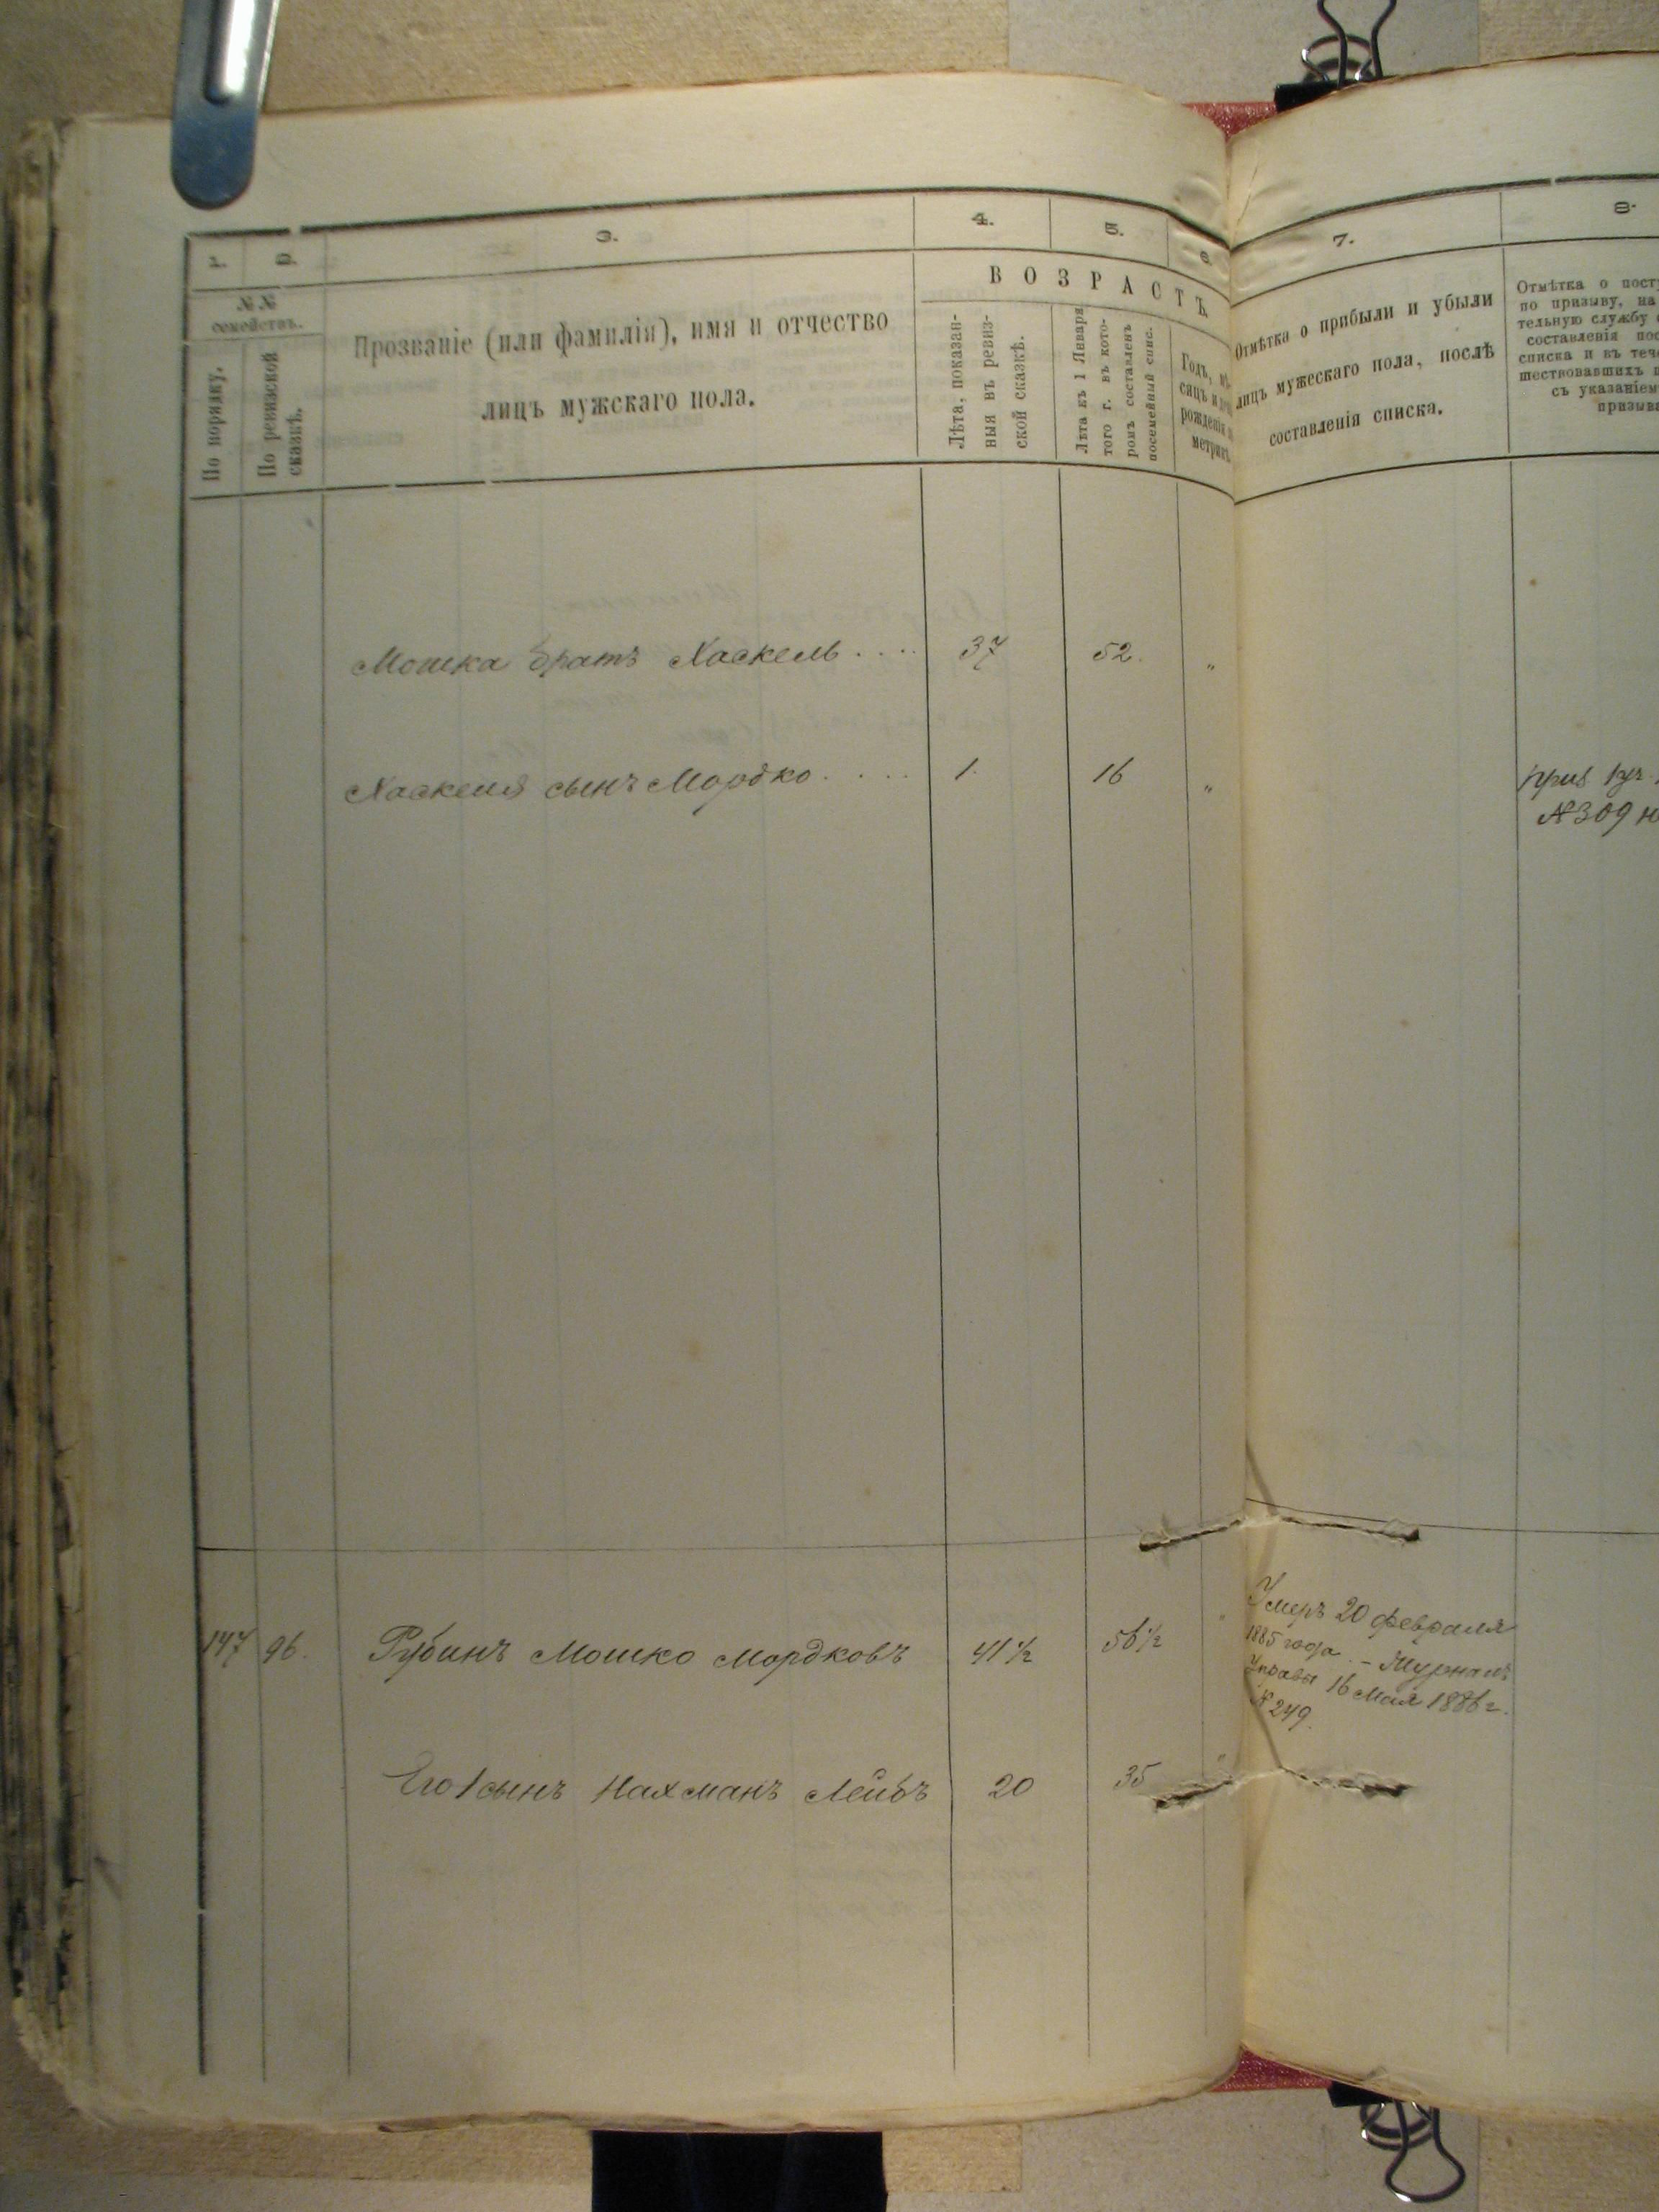 1.
2.
3.
4.
5.
6.
7.
8.
№№ семействъ.
По порядку.
По ревизской
сказкѣ.
Прозваніе (или фамилія), имя и отчество
лицъ мужскаго пола.
ВОЗРАСТЪ
Лѣта, показан-
ныя въ ревиз-
ской сказкѣ.
Лѣта къ 1 Января
того г. въ кото-
ромъ составленъ
посемейный спис.
Годъ, мѣ-
сяцъ и
рожденія
метрик
Отмѣтка о прибыли и убыли
лицъ мужескаго пола, послѣ
составленія списка.
Отмѣтка о пост
по призыву, на
тельную службу
составленія пос
списка и въ теч
шествовавшихъ
съ указаніем
призыва
Мошка братъ Хаскель .... 37 52. "
Хаскеля сынъ Мордко ..... 1. 16 "
№309
147 96. Рубинъ Мошко Мордковъ 41½ 56½ "
Умеръ 20 февраля
1885 года. – Журналъ
Управы 16 Мая 1886 г.
№249.
Его 1 сынъ Нахманъ Лейбъ 20 35 "